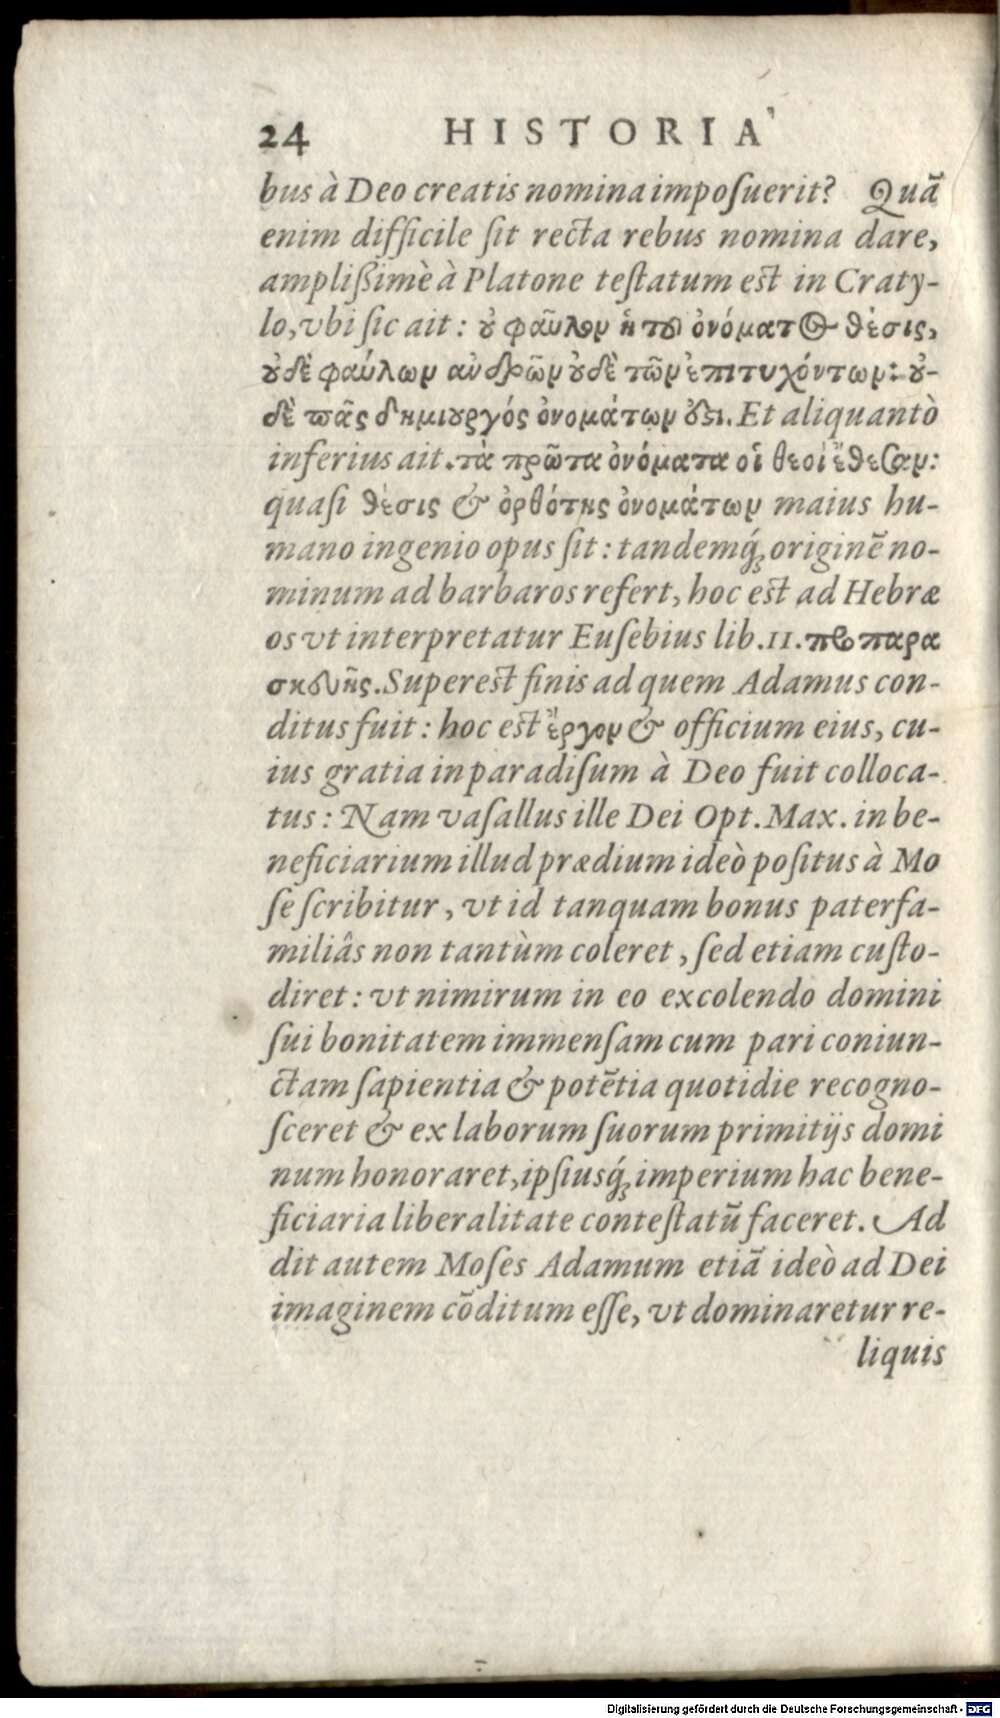 24 HISTORIA
bus à Deo creatis nomina imposuerit? Quã
enim difficile sit recta rebus nomina dare,
amplißimè à Platone testatum est in Craty-
lo, vbi sic ait: ȣ φαῦλον ἡ τοῦ ὀνόματος θέσις,
ȣδὲ φαύλων ἀνδρῶν ȣδὲ τῶν ἐπιτυχόντων: ȣ-
δὲ πᾶς δημιȣργός ὀνομάτων ȣ̃ϛι. Et aliquantò
inferius ait. τὰ πρῶτα ὀνόματα οἱ θεοὶ ἔθεσαν:
quasi θέσις & ὀρθότης ὀνομάτων maius hu-
mano ingenio opus sit: tandemq́; originẽ no-
minum ad barbaros refert, hoc est ad Hebræ
os vt interpretatur Eusebius lib. 11. προπαρα
σκευῆς. Superest finis ad quem Adamus con-
ditus fuit: hoc est ἔργον & officium eius, cu-
ius gratia in paradisum à Deo fuit colloca-
tus: Nam vasallus ille Dei Opt. Max. in be-
neficiarium illud prædium ideò positus à Mo
se scribitur, vt id tanquam bonus paterfa-
miliâs non tantùm coleret, sed etiam custo-
diret: vt nimirum in eo excolendo domini
sui bonitatem immensam cum pari coniun-
ctam sapientia & potẽtia quotidie recogno-
sceret & ex laborum suorum primitijs domi
num honoraret, ipsiusq́; imperium hac bene-
ficiaria liberalitate contestatũ faceret. Ad
dit autem Moses Adamum etiã ideò ad Dei
imaginem cõditum esse, vt dominaretur re-
liquis
Digitalisierung gefördert durch die Deutsche Forschungsgemeinschaft - DFG